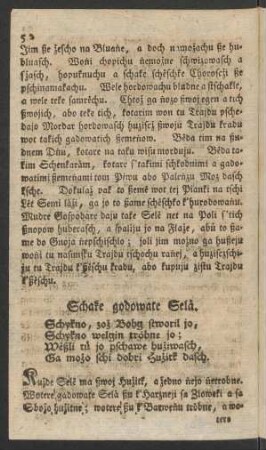 52
Jim ße jescho na Bluańe, a doch n wozachu ße hu-
bluasch. Woni chopichu ńemożne schwizowasch a
sjasch, hopuknuchu a schake schēschke Choroscżi ße
pschinamakachu. Wele hordowachu bludne a ßschakte,
a wele teke samrēchu. Chtoż ga ńoʒo ßwoj egen a tich
ßwojich, abo teke tich, kotarim won tu Trajdu psche-
dajo Mordar hordowasch husisch ßwoju Trajdu kradu
wot takich gadowatich ßemenow. Bēda tim na ßu-
dnem Dńu, kotare na taku wisu morduju. Bēda ta-
kim Schenkaram, kotare s'takimi schkodnimi a gado-
watimi ßemenami tom Piwu abo Palenżu Moz dasch
kschē. Dokulaż pak to ßemē wot tej Planki na tschi
Lēt Semi lażi, ga jo to ßame schēschko k'hurodowanu.
Mudre Gospodare daju take Selē net na Poli s'tich
ßnopow huberasch, a spaliju jo na Flaze, abu to ßa-
me do Gnoja nepschischlo; joli jim możno ga hußeju
woni tu nasimsku Trajdu tschochu ranej, a husisczschi-
żu tu Trajdu k'ßēschu kradu, abo kupuju zistu Trajdu
k'ßēschu.
Schake godowate Selā.
Schykno, zož Bohg ßtworil jo,
Schykno welgin trôbne jo;
Wēßli tu jo pschawe hużiwasch,
Ga możo schi dobri Hużitk dasch.
Kużde Selē ma ßwoj Hużitk, a żedno nejo netrobne.
Wotere gadowate Selā ßu k'Harznejí ſa Zlowski a ſa
Sbożo hużitne; wotere ßu k'Barwenu trôbne, a wo-
tere